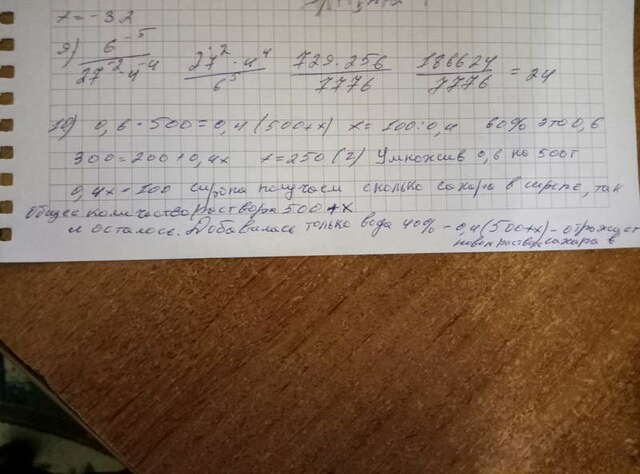 x = -3,2
9) 6^-5 / 27^-2 · 4^-4   27^2 · 4^4 / 6^5   729 · 256 / 7776   186624 / 7776 = 24
10) 0,6 · 500 = 0,4 (500+x) x = 100 : 0,4 60% это 0,6
300 = 200 + 0,4x x = 250 (г) Умножив 0,6 на 500г
0,4x = 100 сиропа получаем сколько сахара в сиропе, так
Общее количество раствора 500 + x
и осталось. Добавилась только вода 40% - 0,4 (500+x) - отражает
сахара в